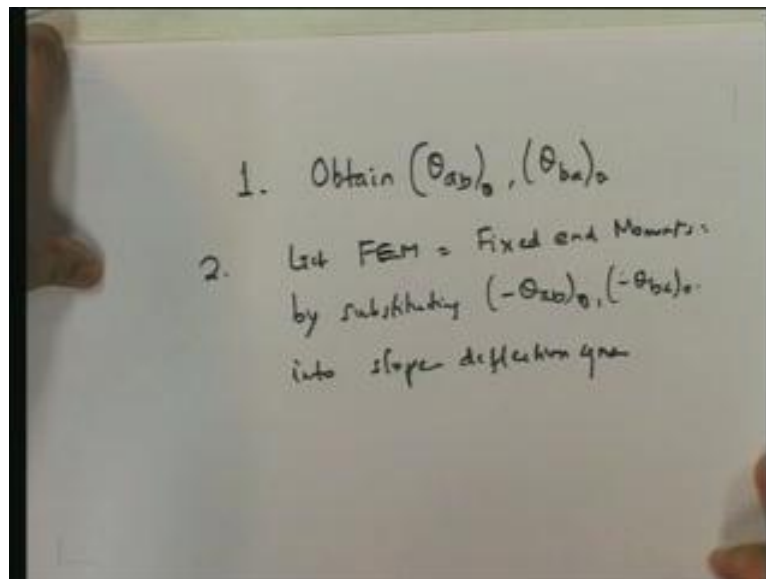 1. Obtain (θab)₀, (θba)₀
2. Get FEM = Fixed end Moments.
by substituting (-θab)₀, (-θba)₀.
into slope deflection eqns